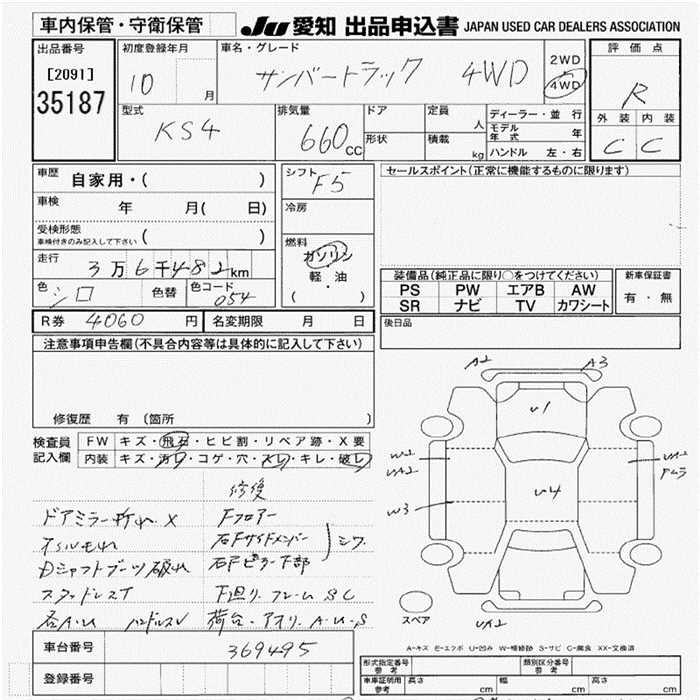 車内保管・守衛保管
JU 愛知 出品申込書 JAPAN USED CAR DEALERS ASSOCIATION
出品番号
[2091]
35187
初度登録年月
10 月
車名・グレード
サンバートラック 4WD
2WD
4WD
評価点
R
外装 内装
C C
型式
KS4
排気量
660 cc
ドア
形状
定員 人
積載 kg
ディーラー・並行
モデル年式 年
ハンドル 左・右
車歴 自家用・( )
車検 年 月( 日)
受検形態
車検付きのみ記入して下さい ( )
走行 3万6千482km
色 シロ 色替 色コード 054
シフト F5
冷房
燃料
ガソリン
軽・油
( )
セールスポイント(正常に機能するものに限ります)
装備品(純正品に限り○をつけてください)
PS PW エアB AW
SR ナビ TV カワシート
新車保証書
有・無
R券 4060 円 名変期限 月 日
後日品
注意事項申告欄(不具合内容等は具体的に記入して下さい)
修復歴 有 (箇所 )
検査員記入欄
FW キズ・飛石・ヒビ割・リペア跡・X要
内装 キズ・汚れ・コゲ・穴・スレ・キレ・破レ
修復
ドアミラー折れ X Fフロアー
オイルもれ 右Fサイドメンバー
Dシャフトブーツ破れ 右Fピラー下部
シワ
スタッドレスT 下廻り.フレーム SC
各A・U ハンドルスレ 荷台・アオリ A・U・S
A2 A3
U1
U4
W2
UA2
W3
UA2
Fムラ
UA2
スペア
A-キズ E-エクボ U-凹み W-補修跡 S-サビ C-腐食 XX-交換済
車台番号 369495
登録番号
形式指定番号 参考
類別区分番号 参考
車庫証明用 参考 長さ cm 幅 cm 高さ cm